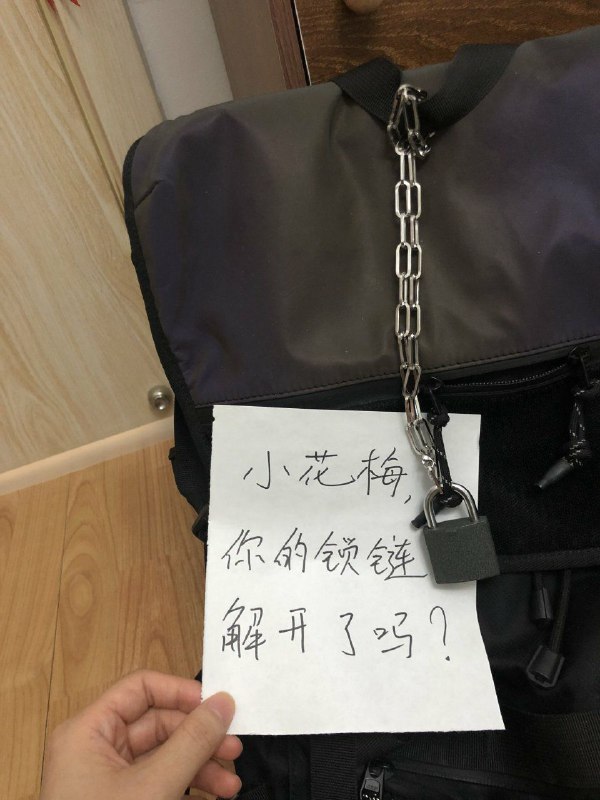 小花梅,
你的锁链
解开了吗?